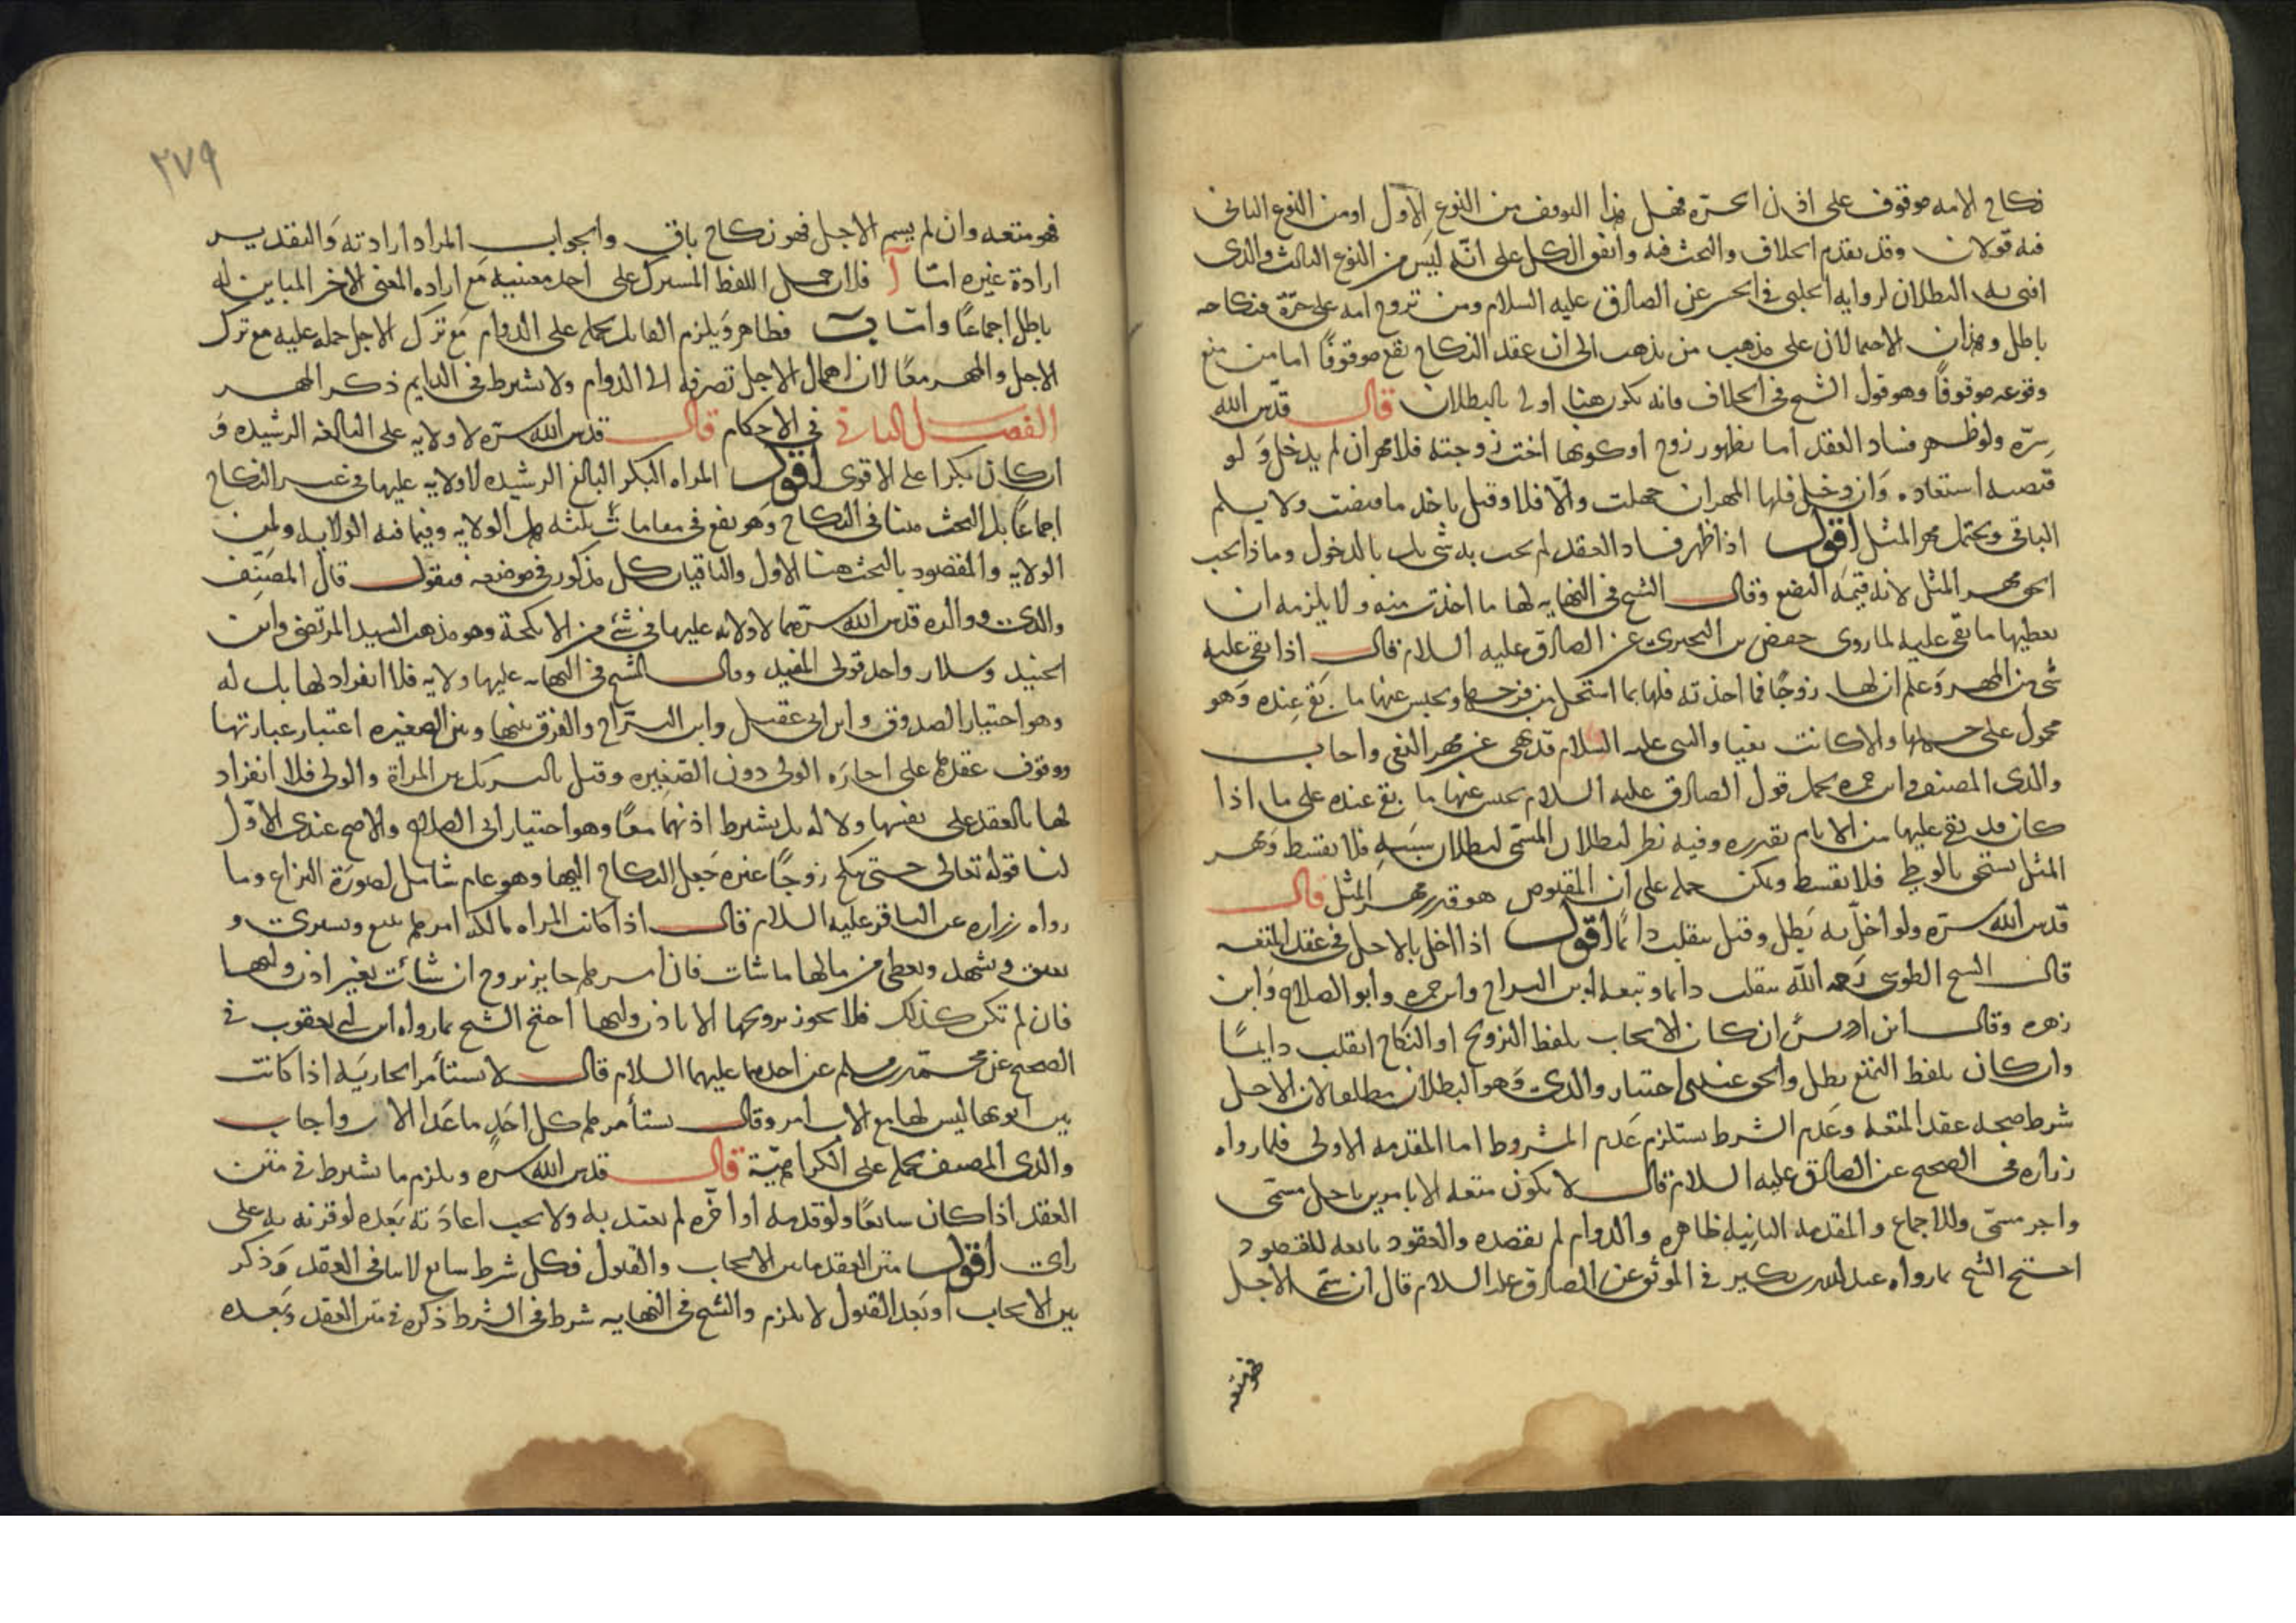 نكاح الامه موقوف على اذن الحرّة فهل هذا التوقف من النوع الاول او من النوع الثانى
فيه قولان وقد تقدم الخلاف والبحث فيه واتفق الكل على انّه ليس من النوع الثالث والذى
افتى به البطلان لروايه الحلبى فى الحسن عن الصادق عليه السلام ومن تزوج امه على حرّة فنكاحه
باطل وهذان الاحتمالان على مذهب من يذهب الى ان عقد النكاح يقع موقوفًا اما من منع
وقوعه موقوفًا وهو قول الشيخ فى الخلاف فانه يكون هنا اولى بالبطلان قال قدّس الله
سرّه ولو ظهر فساد العقد اما بظهور زوج او كونها اخت زوجته فلا مهر ان لم يدخل وَلو
قبضه استعاده وَان دخل فلها المهر ان جهلت والّا فلا وقيل ياخذ ما قبضت ولا يسلم
الباقى ويحتمل مهر المثل اقول اذا ظهر فساد العقد لم يجب به شى بل بالدخول وماذا يجب
الحق مهر المثل لانه قيمَة البضع وقال الشيخ فى النهايه لها ما اخذت منه ولا يلزمه ان
يعطيها ما بقى عليه لما روى حفص بن البخترى عن الصادق عليه السلام قال اذا بقى عليه
شى من المهر وَعلم ان لها زوجًا فما اخذته فلها بما استحل من فرجها ويحبس عنها ما بقى عِنده وَهو
محمول على جهلها والا كانت بغيا والنبى عليه السلام قد نهى عن مهر البغى واجاب
والدى المصنف وابن حمزه بحمل قول الصادق عليه السلام يحبس عنها ما بقى عنده على ما اذا
كان قد بقى عليها من الايام بقدره وفيه نظر لبطلان المسمّى لبطلان سَبَبِهِ فلا يقسط وَمهر
المثل يستحق بالوطى فلا يقسط ويمكن حمله على ان المقبوض هو قدر مهر المثل قال
قدّس الله سرّه ولو اخلّ به بَطل وقيل ينقلب دائمًا اقول اذا اخل بالاجل فى عقد المتعه
قال الشيخ الطوسى رَحمه الله ينقلب دائما وتبعه ابن البراج وابن حمزه وابو الصلاح وَابن
زهره وقال ابن ادريسَ ان كان الايجاب بلفظ التزويج او النكاح انقلب دايمًا
وان كان بلفظ التمتع بطل والحق عندى اختيار والدى وَهو البطلان مطلقا لان الاجل
شرط صحه عقد المتعه وعَدم الشرط يستلزم عَدم المشروط اما المقدمه الاولى فلما رواه
زراره فى الصحيح عن الصادق عليه السلام قال لا يكون متعه الا بامرين باجل مسمّى
واجر مسمّى وللاجماع والمقدمه الثانيه ظاهره والدوام لم يقصده والعقود تابعه للقصود
احتج الشيخ بما رواه عبد الله بن بكير فى الموثق عن الصادق عليه السلام قال ان سمّى الاجل
فهو متعه
٢٧٩
فهو متعه وان لم يسم الاجل فهو نكاح باقٍ والجواب المراد ارادته وَالتقدير
ارادة غيره امّا آ فلان حمل اللفظ المشترك على احد معنييه مَع اراده المعنى الاخر المباين له
باطل اجماعًا وامّا ب فظاهر وَيلزم القايل بحمله على الدوام مَع ترك الاجل حمله عليه مع ترك
الاجل والمهر معًا لان اهمال الاجل تصرفه الى الدوام ولا يشترط فى الدايم ذكر المهر
الفصل الثانى فى الاحكام قال قدس الله سرّه لا ولايه على البالغه الرشيده وَ
ان كان بكرا على الاقوى اقول المراه البكر البالغ الرشيده لا ولايه عليها فى غير النكاح
اجماعًا بل البحث هنا فى النكاح وَهو يقع فى مقامات ثلثه هل الولايه وفيما فيه الولايه ولمن
الولايه والمقصود بالبحث هنا الاول والباقيان كل مذكور فى موضعه فنقول قال المصنّف
والدى ووالده قدس الله سرّهما لا ولايه عليها فى شئ من الانكحة وهو مذهب السيد المرتضى وابن
الجنيد وسلار واحد قولى المفيد وقال الشيخ فى النهايه عليها ولايه فلا انفراد لها بل له
وهو اختيار الصدوق وابن ابى عقيل وابن البرّاج والفرق بينها وبين الصغيره اعتبار عبارتها
ووقوف عقدها على اجازه الولى دون الصَغِيره وقيل بالتشريك بين المراة والولى فلا انفراد
لها بالعقد على نفسها ولا له بل يشترط اذنهما معًا وهو اختيار ابى الصلاح والاصح عندى الاوّل
لنا قوله تعالى حتى تنكح زوجًا غيره جَعل النكاح اليها وهو عام شامل لصورَة النزاع وما
رواه زراره عن الباقر عليه السلام قال اذا كانت المراه مالكه امرها تبيع وتشترى و
تعتق وتشهد وتعطى من مالها ما شات فان امرها جايز تزوج ان شائت بغير اذن وليها
فان لم تكن كذلك فلا يجوز تزويجها الا باذن وليها احتج الشيخ بما رواه ابن ابى يعقوب فى
الصحيح عن محمّد بن مسلم عن احدهما عليهما السلام قال لا تستأمر الجاريَه اذا كانت
بين ابويها ليس لها مع الاب امر وقال يستأمرها كل احَدٍ ما عَدا الاب واجاب
والدى المصنف بحمله على الكراهيّة قال قدس الله سره ويلزم ما يشترط فى متن
العقد اذا كان سايغًا ولو قدمه او اخّره لم يعتد به وَلا يجب اعادَته بَعده لو قرنه به على
راى اقول متن العقد ما بين الايجاب والقبول فكل شرط سايغ لا ينافى العقد وَذكر
بين الايجاب او بَعد القبول لا يلزم والشيخ فى النهايه شرط فى الشرط ذكره فى متن العقد وَبَعده